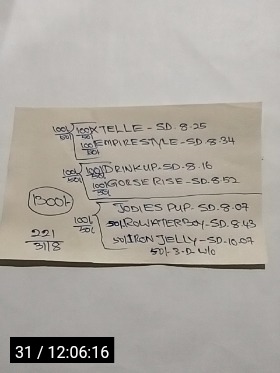 100/50/ 100/50 XTELLE - SD. 8.25
100/50/ EMPIRESTYLE - SD. 8.34
100/50/ 100/50/ DRINKUP - SD. 8.16
100/50/ GORSE RISE - SD. 8.52
1300/-
JODIES PUP - SD. 8.07
100/50/ 50/ ROWATERBOY - SD. 8.43
221/3118 50/ IRON JELLY - SD - 10.07
50/- 3-D W/C
31 / 12:06:16